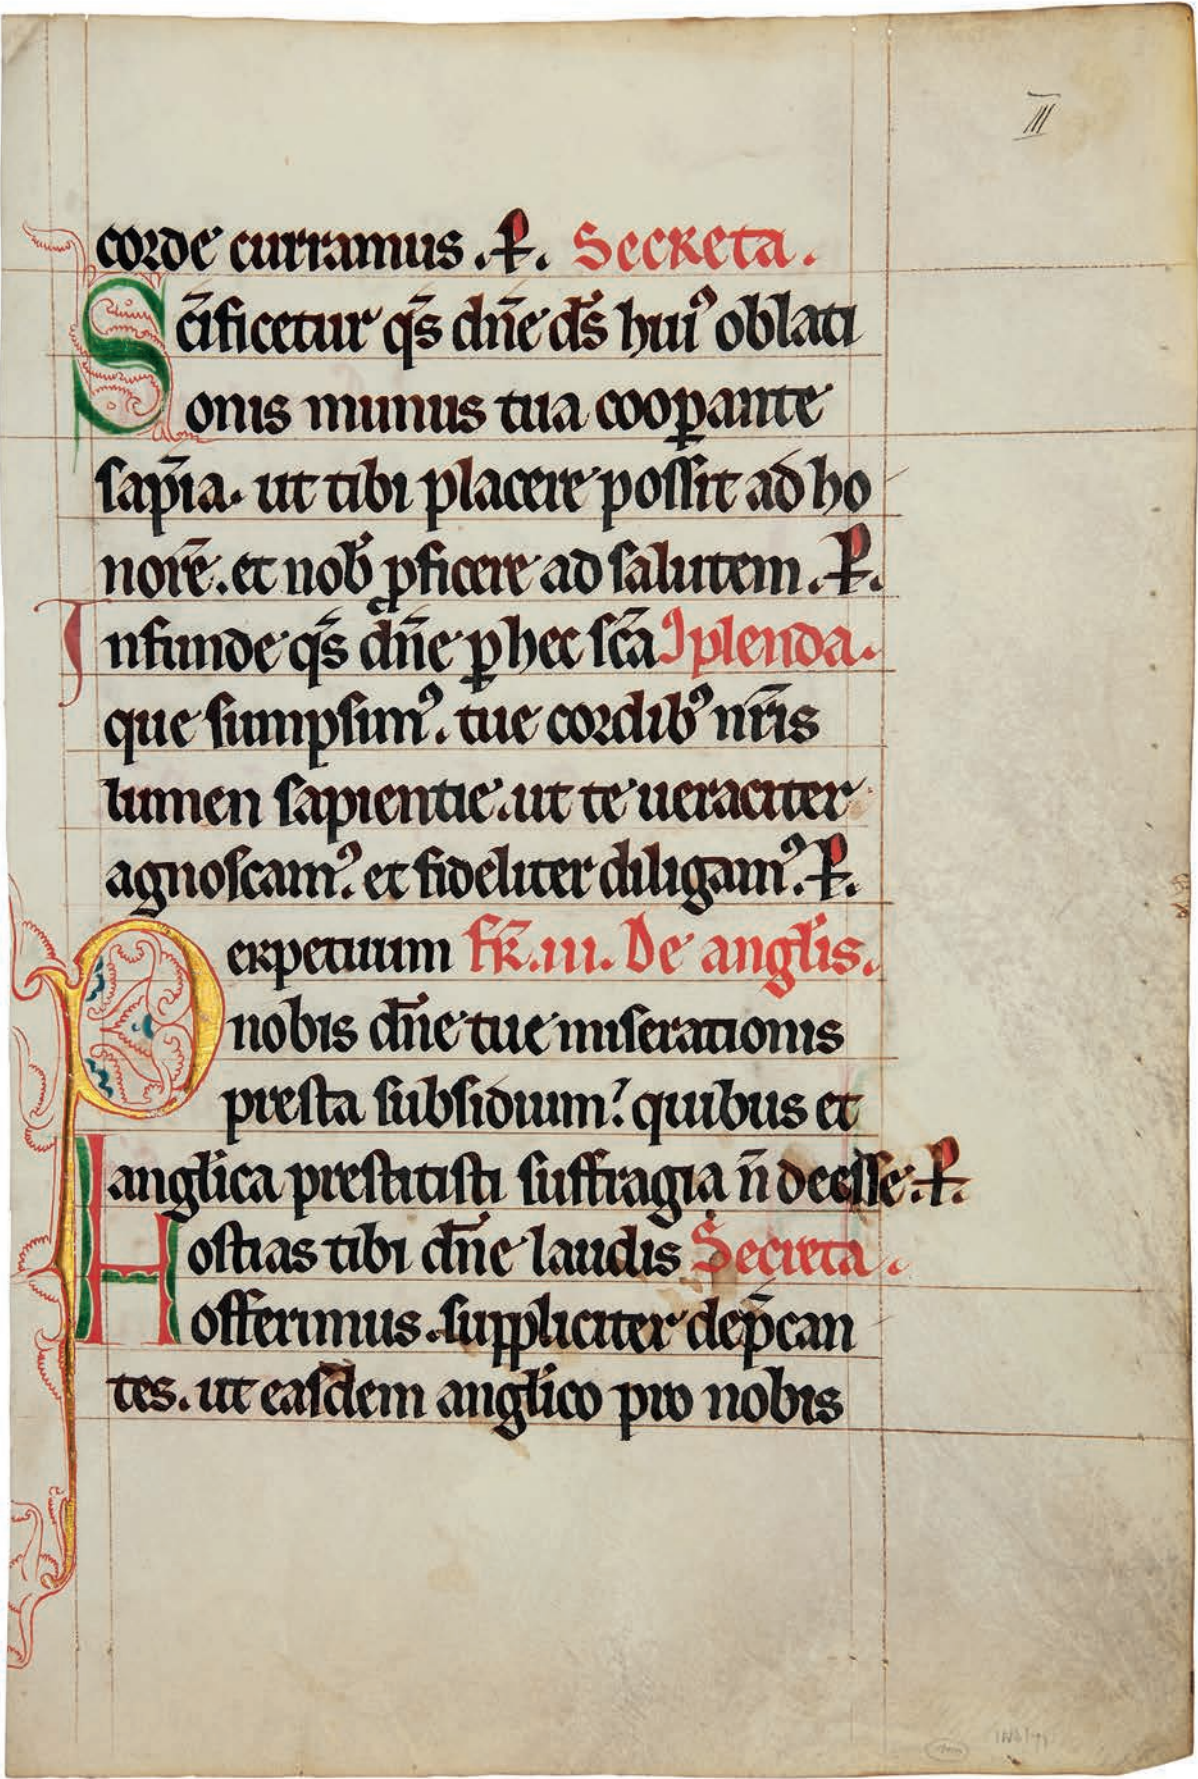 III
corde curramus. P. Secreta.
Sc̄ificetur qs̄ dn̄e ds̄ huiꝰ oblati
onis munus tua coopꝑante
sap̄ia. ut tibi placere possit ad ho
norē. et nob̄ ꝓficere ad salutem. P.
Infunde qs̄ dn̄e ꝑ hec sc̄a Iplenda.
que sumpsimꝰ. tue cordibꝰ nr̄is
lumen sapientie. ut te ueraciter
agnoscamꝰ. et fideliter diligamꝰ. P.
Perpetuum fR̄. III. De angl̄is.
nobis dn̄e tue miserationis
presta subsidium: quibus et
angl̄ica prestitisti suffragia n̄ deesse. P.
Hostias tibi dn̄e laudis Secreta.
offerimus. suppliciter dep̄can
tes. ut easdem angl̄ico pro nobis